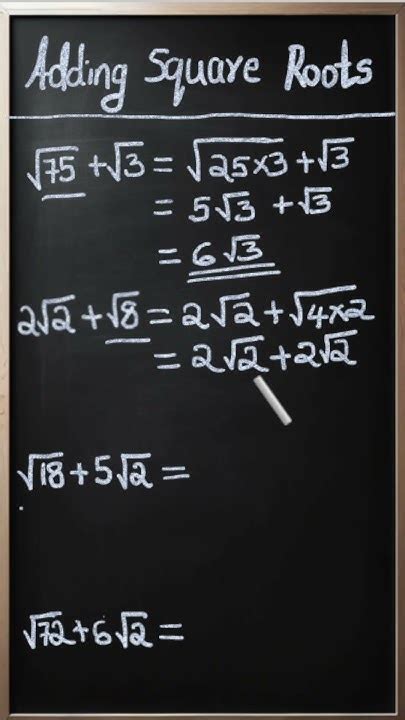 Adding Square Roots
√75 + √3 = √25×3 + √3
= 5√3 + √3
= 6√3
2√2 + √8 = 2√2 + √4×2
= 2√2 + 2√2
√18 + 5√2 =
√72 + 6√2 =